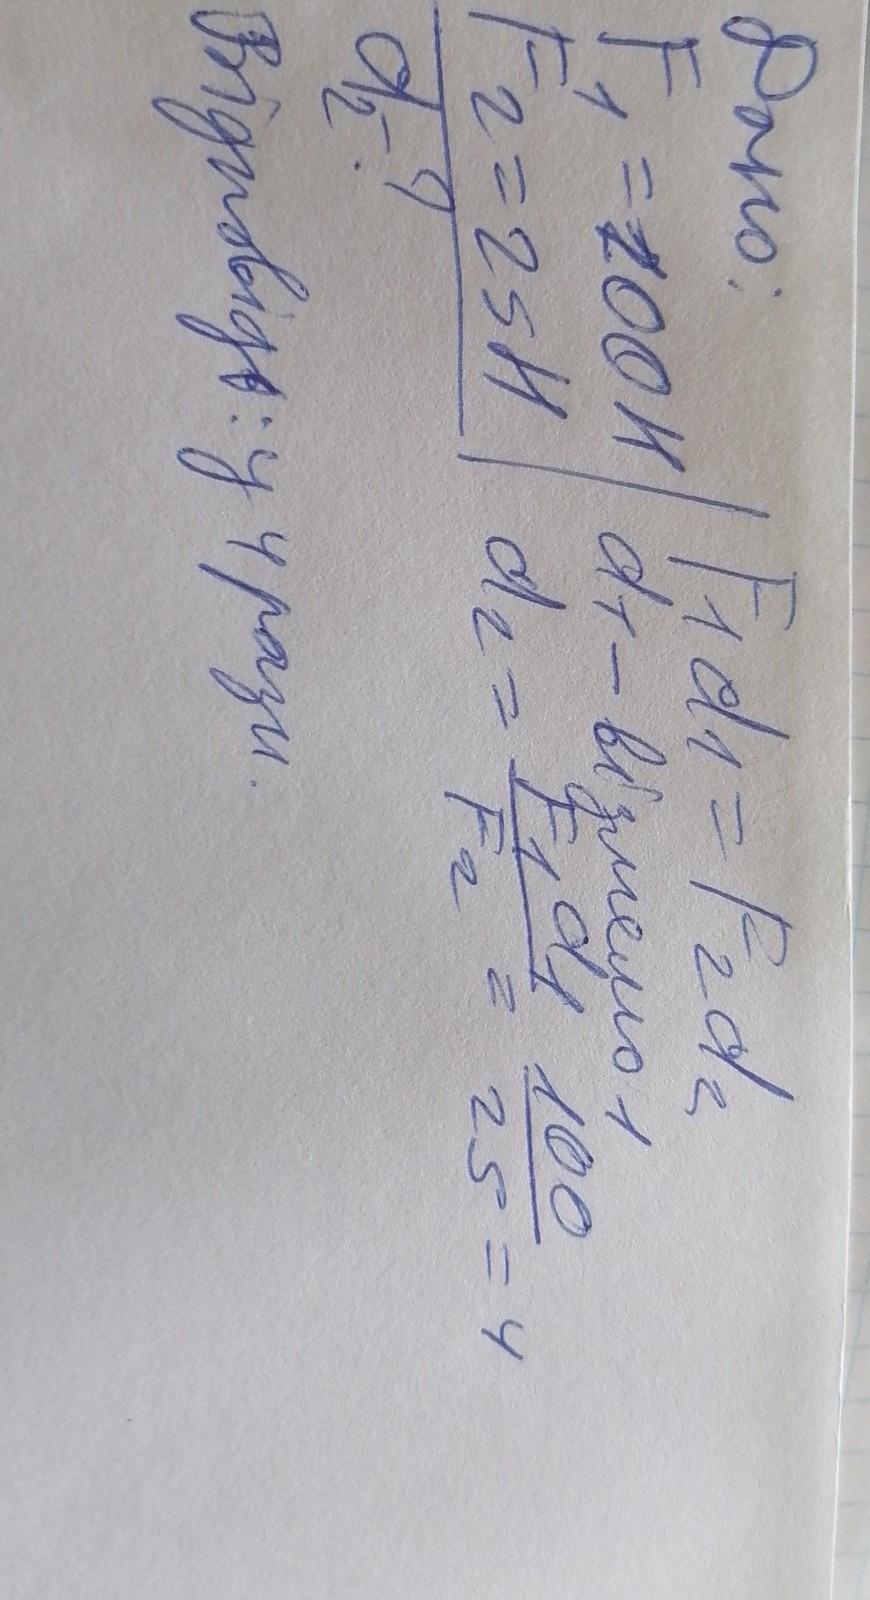 Дано:
F1 = 100 Н
F2 = 25 Н
d2 - ?
F1d1 = F2d2
d1 - візмемо 1
d2 = F1d1 / F2 = 100 / 25 = 4
Відповідь: у 4 рази.